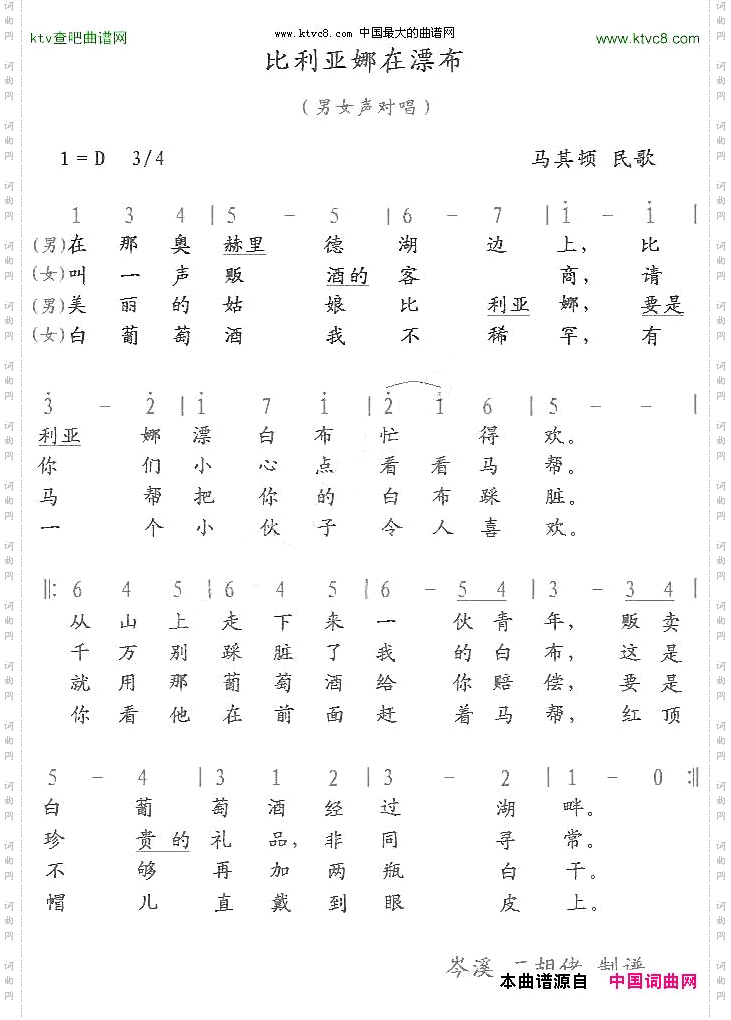 www.ktvc8.com 中国最大的曲谱网
ktv查吧曲谱网
www.ktvc8.com
比利亚娜在漂布
（男女声对唱）
1=D 3/4
马其顿 民歌
1 3 4 | 5 - 5 | 6 - 7 | i - i |
(男)在那奥赫里德湖边上，比
(女)叫一声贩酒的客商，请
(男)美丽的姑娘比利亚娜，要是
(女)白葡萄酒我不稀罕，有
3 - 2 | i 7 i | 2 i 6 | 5 - - |
利亚娜漂白布忙得欢。
你们小心点看看马帮。
马帮把你的白布踩脏。
一个小伙子令人喜欢。
‖: 6 4 5 | 6 4 5 | 6 - 5 4 | 3 - 3 4 |
从山上走下来一伙青年，贩卖
千万别踩脏了我的白布，这是
就用那葡萄酒给你赔偿，要是
你看他在前面赶着马帮，红顶
5 - 4 | 3 1 2 | 3 - 2 | 1 - 0 :‖
白葡萄酒经过湖畔。
珍贵的礼品，非同寻常。
不够再加两瓶白干。
帽儿直戴到眼皮上。
岑溪 二胡佬 制谱
本曲谱源自 中国词曲网
词曲网